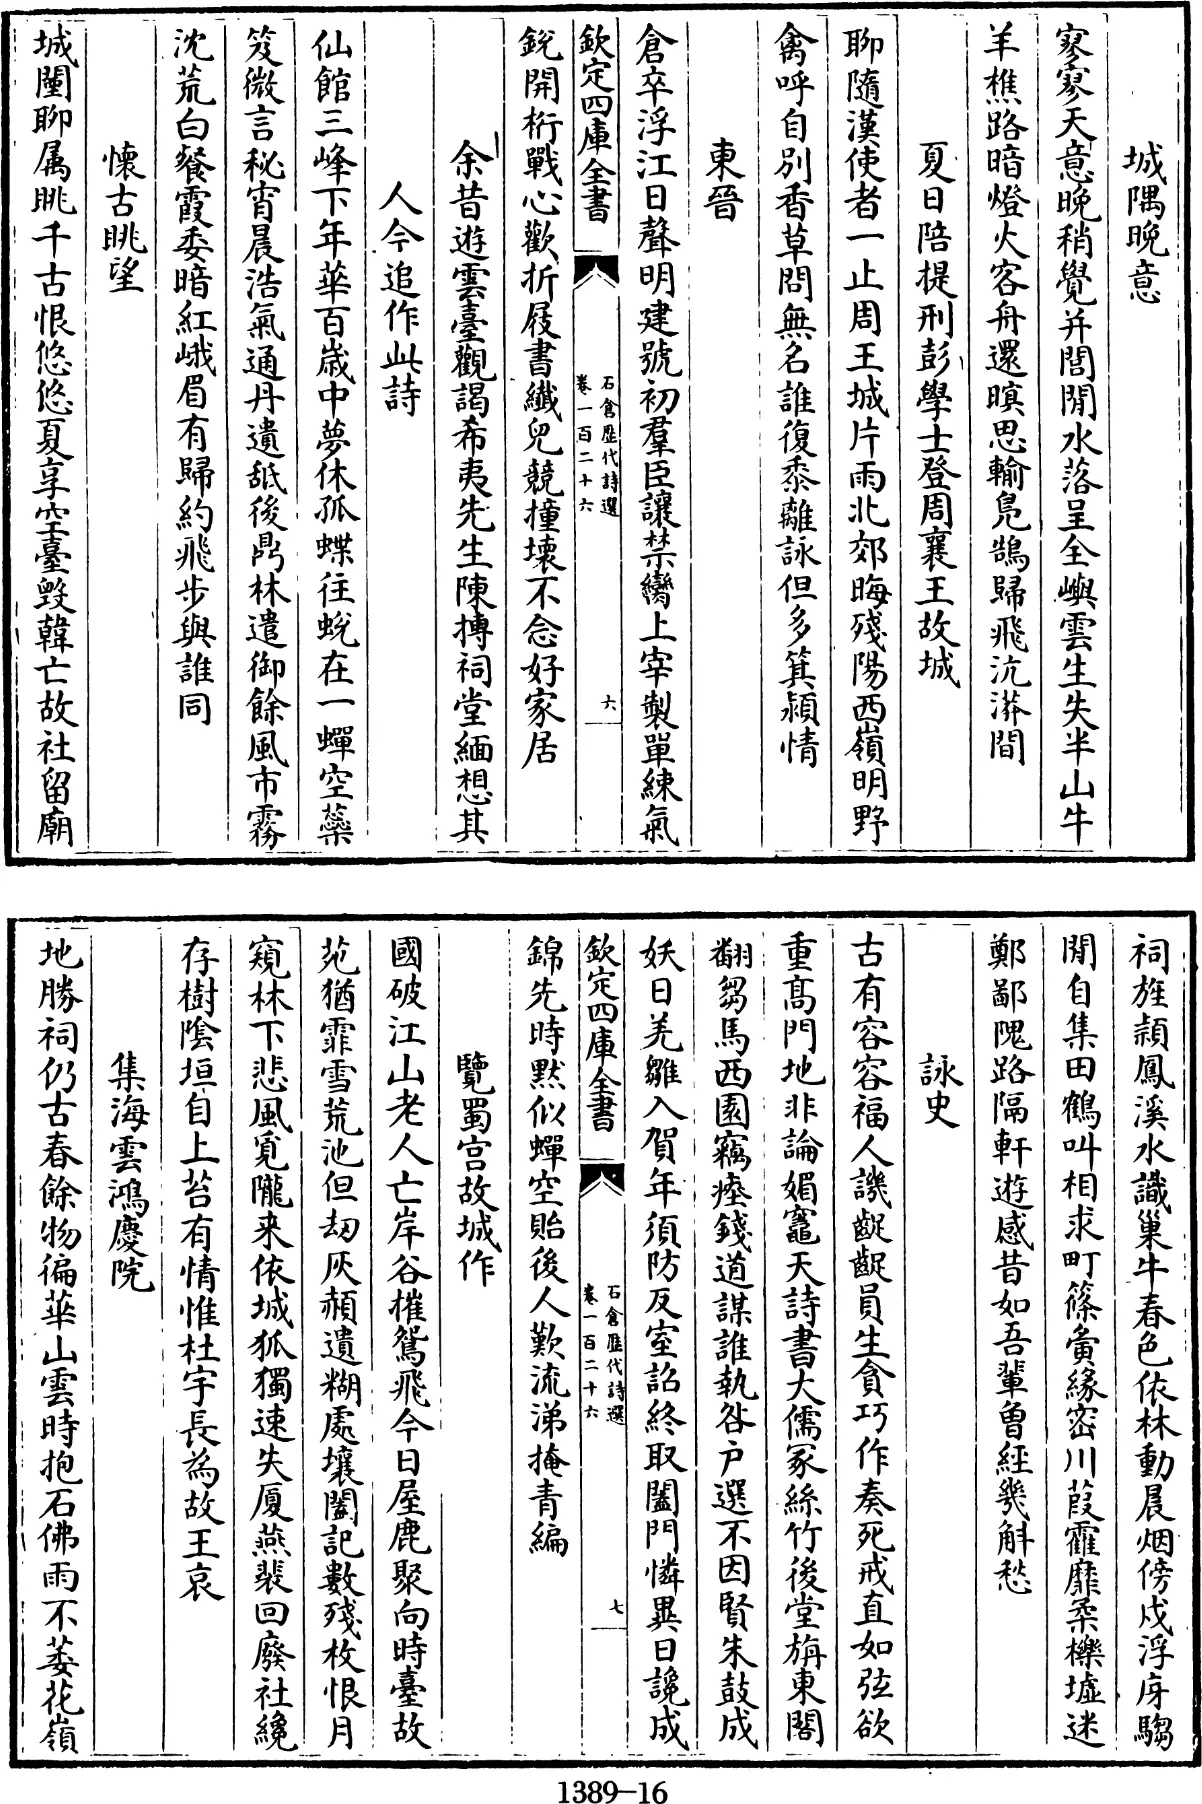 城隅晚意
寥寥天意晚稍覺并閭閒水落呈全嶼雲生失半山牛
羊樵路暗燈火客舟還暝思輸鳬鵠歸飛沆漭間
夏日陪提刑彭學士登周襄王故城
聊隨漢使者一止周王城片雨北郊晦殘陽西嶺明野
禽呼自別香草問無名誰復黍離詠但多箕潁情
東晉
倉卒浮江日聲明建號初羣臣讓禁臠上宰製單練氣
欽定四庫全書
石倉歷代詩選
卷一百二十六
六
銳開桁戰心歡折屐書纖兒競撞壞不念好家居
余昔遊雲臺觀謁希夷先生陳摶祠堂緬想其
人今追作此詩
仙館三峰下年華百歲中夢休孤蝶往蛻在一蟬空蘂
笈微言秘宵晨浩氣通丹遺舐後鼎林遣御餘風市霧
沈荒白餐霞委暗紅峨眉有歸約飛步與誰同
懷古眺望
城闉聊属眺千古恨悠悠夏享空臺毀韓亡故社留廟
祠旌潁鳳溪水識巢牛春色依林動晨烟傍戍浮序騶
閒自集田鶴叫相求町篠夤緣密川葭靃靡柔櫟墟迷
鄭鄙隗路隔軒遊感昔如吾輩曽經幾斛愁
詠史
古有容容福人譏齪齪員生貪巧作奏死戒直如弦欲
重髙門地非論媚竈天詩書大儒冢絲竹後堂旃東閣
翻芻馬西園竊瘗錢道謀誰執咎户選不因賢朱鼓成
妖日羌雛入賀年須防反室詔終取闔門憐異日讒成
欽定四庫全書
石倉歷代詩選
卷一百二十六
七
錦先時黙似蟬空貽後人歎流涕掩青編
覽蜀宫故城作
國破江山老人亡岸谷摧鴛飛今日屋鹿聚向時臺故
苑猶霏雪荒池但刼灰頳遺糊處壤闟記數殘枚恨月
窺林下悲風覔隴来依城狐獨速失厦燕裴回廢社纔
存樹隂垣自上苔有情惟杜宇長為故王哀
集海雲鴻慶院
地勝祠仍古春餘物徧華山雲時抱石佛雨不萎花嶺
1389-16